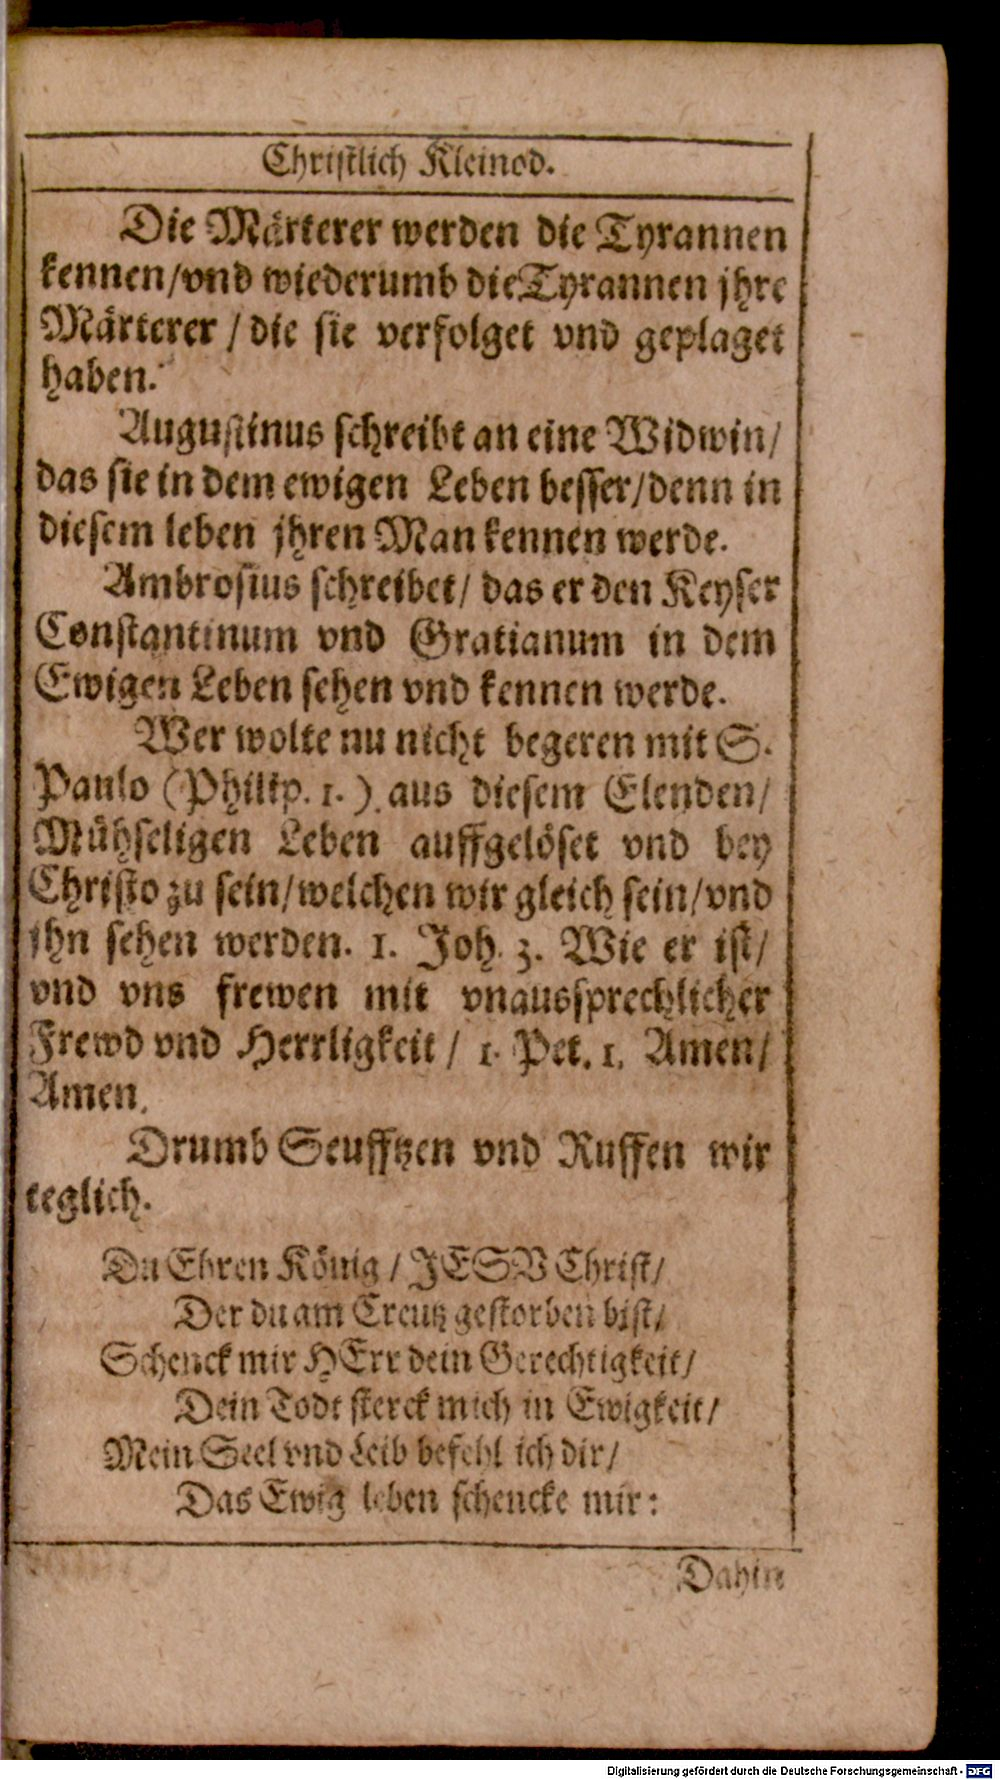 Christlich Kleinod.
Die Märterer werden die Tyrannen
kennen/vnd wiederumb die Tyrannen jhre
Märterer / die sie verfolget vnd geplaget
haben.
Augustinus schreibt an eine Widwin/
das sie in dem ewigen Leben besser/denn in
diesem leben jhren Man kennen werde.
Ambrosius schreibet/ das er den Keyser
Constantinum vnd Gratianum in dem
Ewigen Leben sehen vnd kennen werde.
Wer wolte nu nicht begeren mit S.
Paulo (Philip. 1.) aus diesem Elenden/
Mühseligen Leben auffgelöset vnd bey
Christo zu sein/welchen wir gleich sein/vnd
jhn sehen werden. 1. Joh. 3. Wie er ist/
vnd vns frewen mit vnaussprechlicher
Frewd vnd Herrligkeit / 1. Pet. 1. Amen/
Amen.
Drumb Seufftzen vnd Ruffen wir
teglich.
Du Ehren König / JESV Christ/
Der du am Creutz gestorben bist/
Schenck mir HErr dein Gerechtigkeit/
Dein Todt sterck mich in Ewigkeit/
Mein Seel vnd Leib befehl ich dir/
Das Ewig leben schencke mir:
Dahin
Digitalisierung gefördert durch die Deutsche Forschungsgemeinschaft - DFG